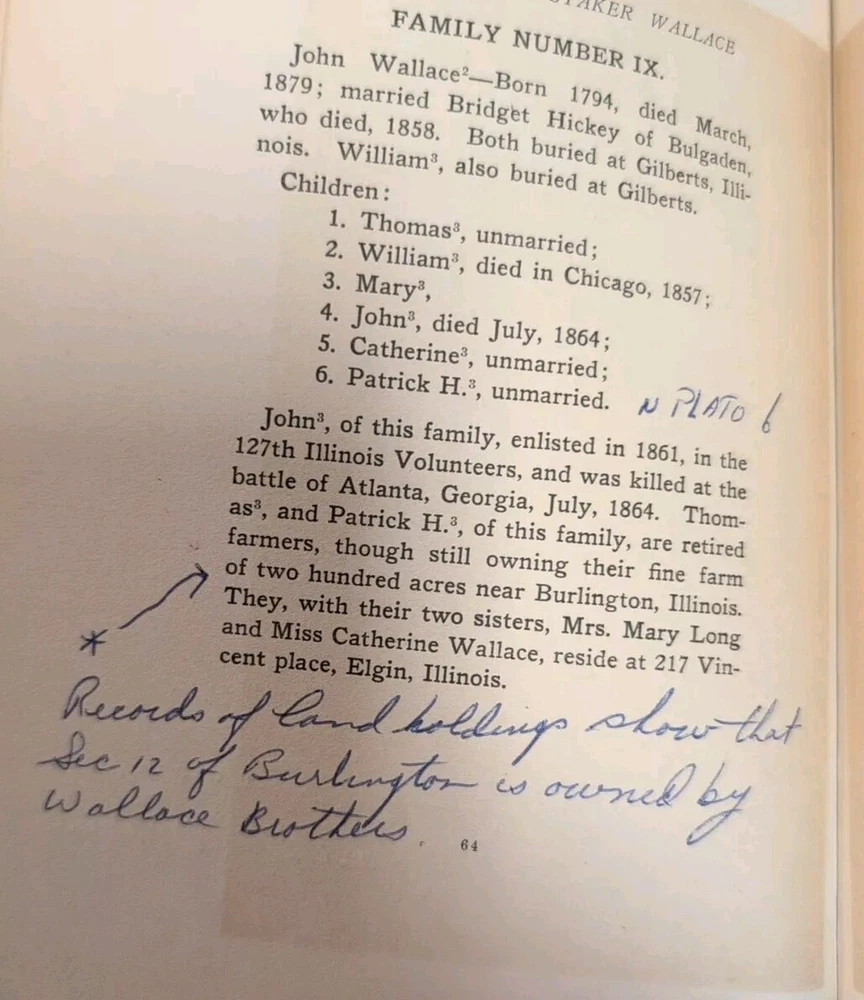 WALLACE
FAMILY NUMBER IX.
John Wallace²—Born 1794, died March,
1879; married Bridget Hickey of Bulgaden,
who died, 1858. Both buried at Gilberts, Illi-
nois. William³, also buried at Gilberts.
Children:
1. Thomas³, unmarried;
2. William³, died in Chicago, 1857;
3. Mary³,
4. John³, died July, 1864;
5. Catherine³, unmarried;
6. Patrick H.³, unmarried. N PLATO 6
John³, of this family, enlisted in 1861, in the
127th Illinois Volunteers, and was killed at the
battle of Atlanta, Georgia, July, 1864. Thom-
as³, and Patrick H.³, of this family, are retired
farmers, though still owning their fine farm
of two hundred acres near Burlington, Illinois.
They, with their two sisters, Mrs. Mary Long
and Miss Catherine Wallace, reside at 217 Vin-
cent place, Elgin, Illinois.
*
Records of land holdings show that
Sec 12 of Burlington is owned by
Wallace Brothers.
64